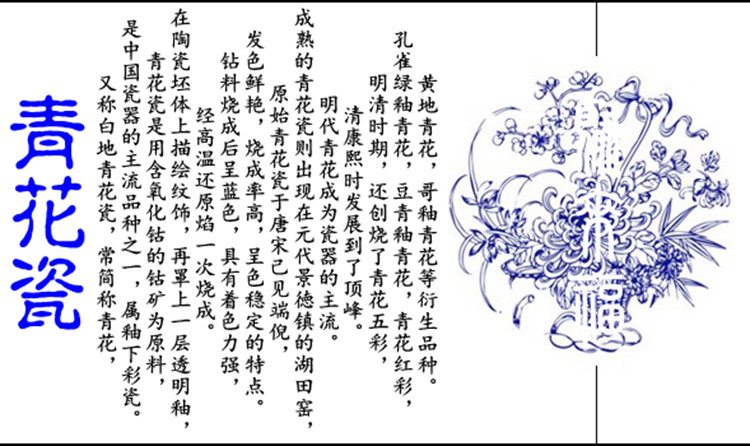 青花瓷
又称白地青花瓷，常简称青花，
是中国瓷器的主流品种之一，属釉下彩瓷。
青花瓷是用含氧化钴的钴矿为原料，
在陶瓷坯体上描绘纹饰，再罩上一层透明釉，
经高温还原焰一次烧成。
钴料烧成后呈蓝色，具有着色力强，
发色鲜艳，烧成率高，呈色稳定的特点。
原始青花瓷于唐宋已见端倪，
成熟的青花瓷则出现在元代景德镇的湖田窑，
明代青花成为瓷器的主流。
清康熙时发展到了顶峰。
明清时期，还创烧了青花五彩，
孔雀绿釉青花，豆青釉青花，青花红彩，
黄地青花，哥釉青花等衍生品种。
福